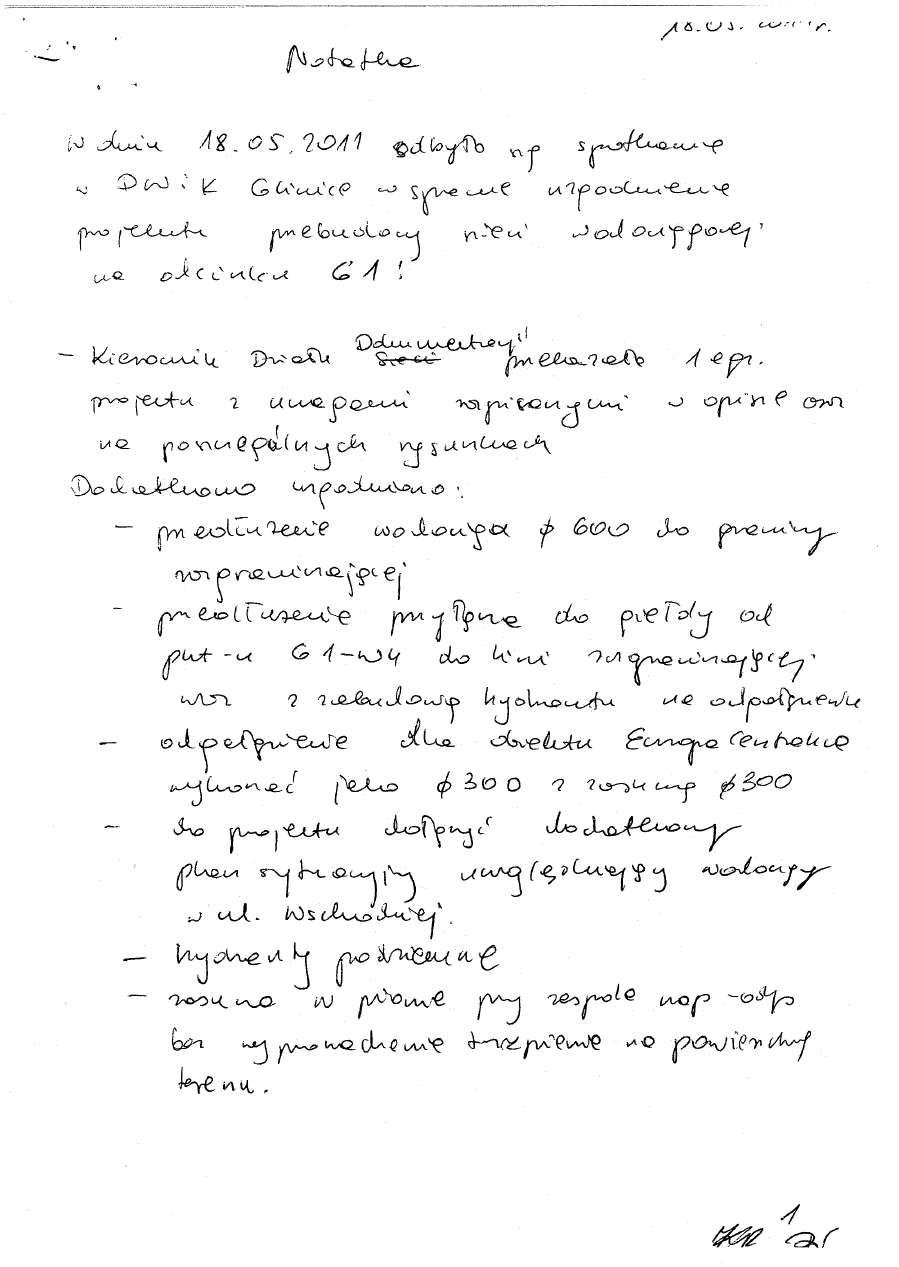 18.05. r.
Notatka
W dniu 18.05.2011 odbyło się spotkanie
w PWiK Gliwice w sprawie uzgodnienia
projektu przebudowy sieci wodociągowej
na odcinku G1:
- Kierownik Działu Dokumentacji przekazała 1 egz.
projektu z uwagami wpisanymi w opisie oraz
na poszczególnych rysunkach
Dodatkowo uzgodniono:
- przedłużenie wodociągu ϕ 600 do granicy
rozgraniczającej
- przedłużenie przyłącza do giełdy od
pkt-u G1-W4 do linii rozgraniczającej
wraz z zabudową hydrantu na odgałęzieniu
- odgałęzienie dla obiektu Europa Centralna
wykonać jako ϕ300 z zasuwą ϕ300
- do projektu dołączyć dodatkowy
plan sytuacyjny uwzględniający wodociągi
w ul. Wschodniej.
- hydranty podziemne
- zasuwa w pionie przy zespole nap-odp
bez wyprowadzenia trzpienia na powierzchnię
terenu.
1